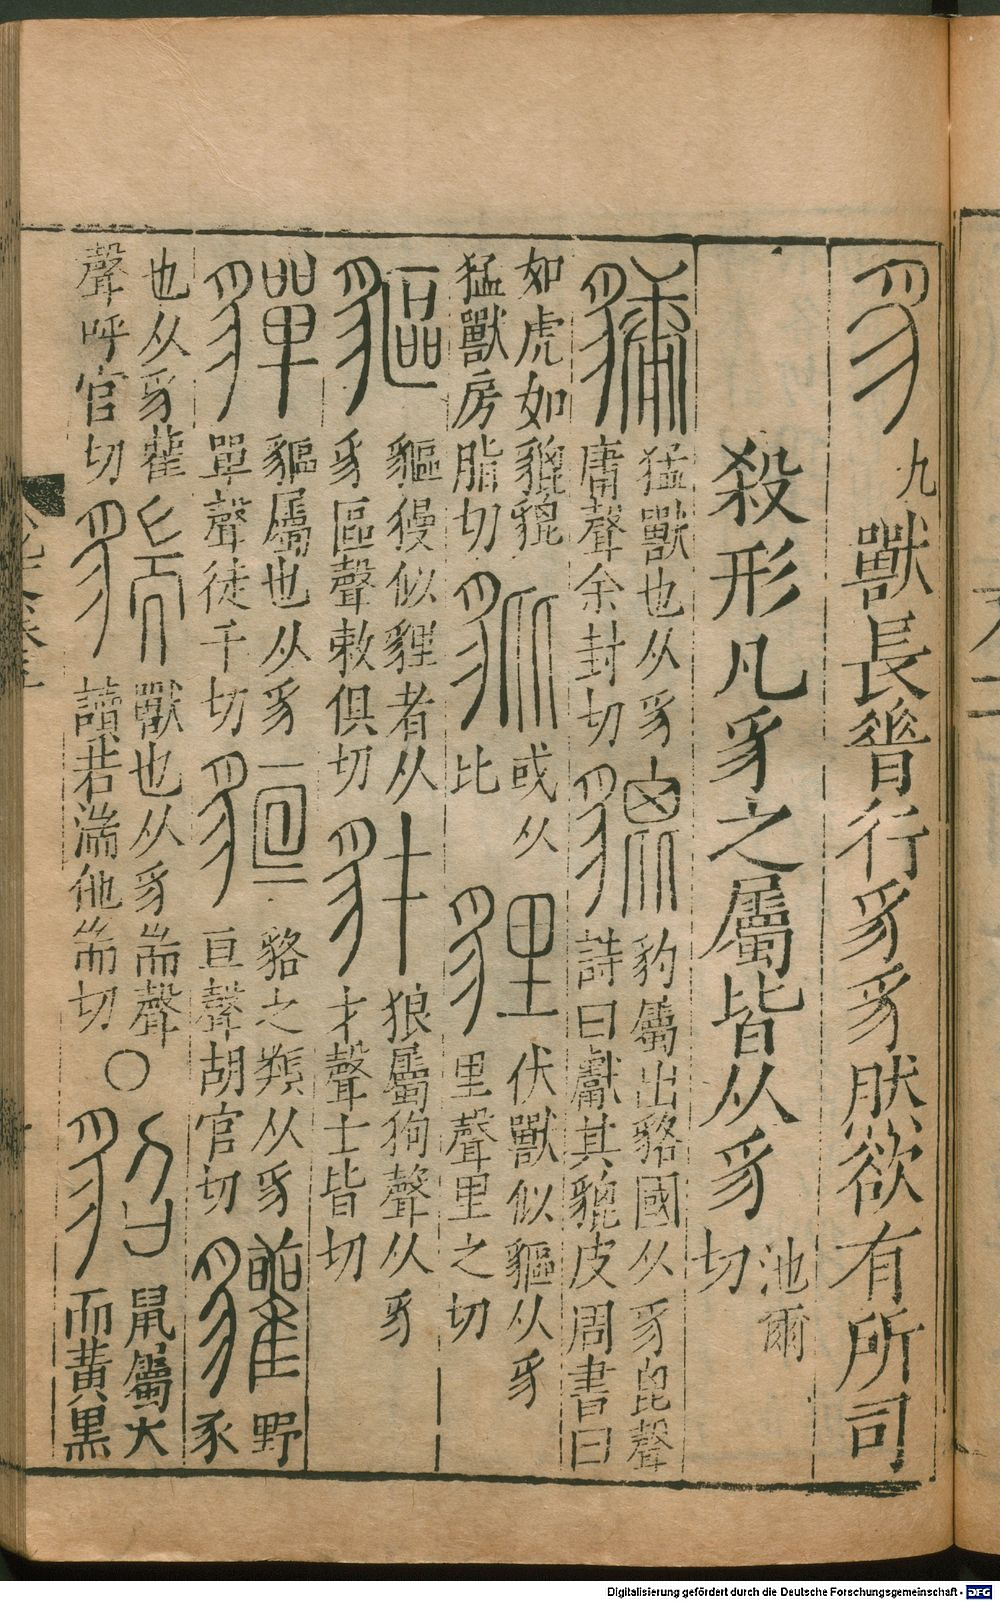 豸 九 獸長脊行豸豸然欲有所司
殺形凡豸之屬皆从豸 池爾切
𧳓 猛獸也从豸庸聲余封切 貔 豹屬出貉國从豸毘聲詩曰獻其貔皮周書曰
如虎如貔貔猛獸房脂切 豼 或从比 貍 伏獸似貙从豸里聲里之切
貙 貙獌似貍者从豸區聲敕俱切 豺 狼屬狗聲从豸才聲士皆切
貚 貙屬也从豸單聲徒干切 貆 貉之類从豸亘聲胡官切 貛 野豕
也从豸雚聲呼官切 貒 獸也从豸耑聲讀若湍他耑切 ○ 貂 鼠屬大而黃黑
Digitalisierung gefördert durch die Deutsche Forschungsgemeinschaft - DFG